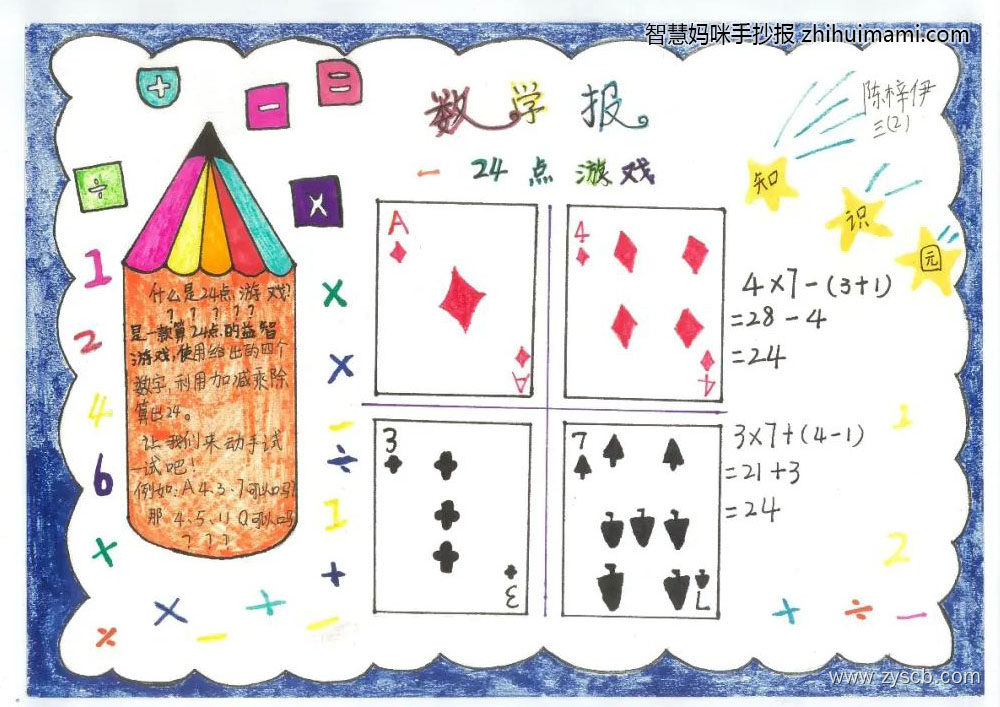 智慧妈咪手抄报 zhihuimami.com
数学报
陈梓伊
三(2)
- 24点游戏
知识园
+
-
=
÷
×
什么是24点游戏?
? ? ? ? ?
是一款算24点的益智
游戏,使用给出的四个
数字,利用加减乘除
算出24。
让我们来动手试
一试吧!
例如:A 4、3、7可以吗?
那 4、5、J、Q可以吗
? ? ?
1
2
4
6
×
×
×
-
÷
1
+
A
A
4
4
3
3
7
7
4×7-(3+1)
=28-4
=24
3×7+(4-1)
=21+3
=24
1
2
× × + - -
+ ÷ -
www.zyscb.com